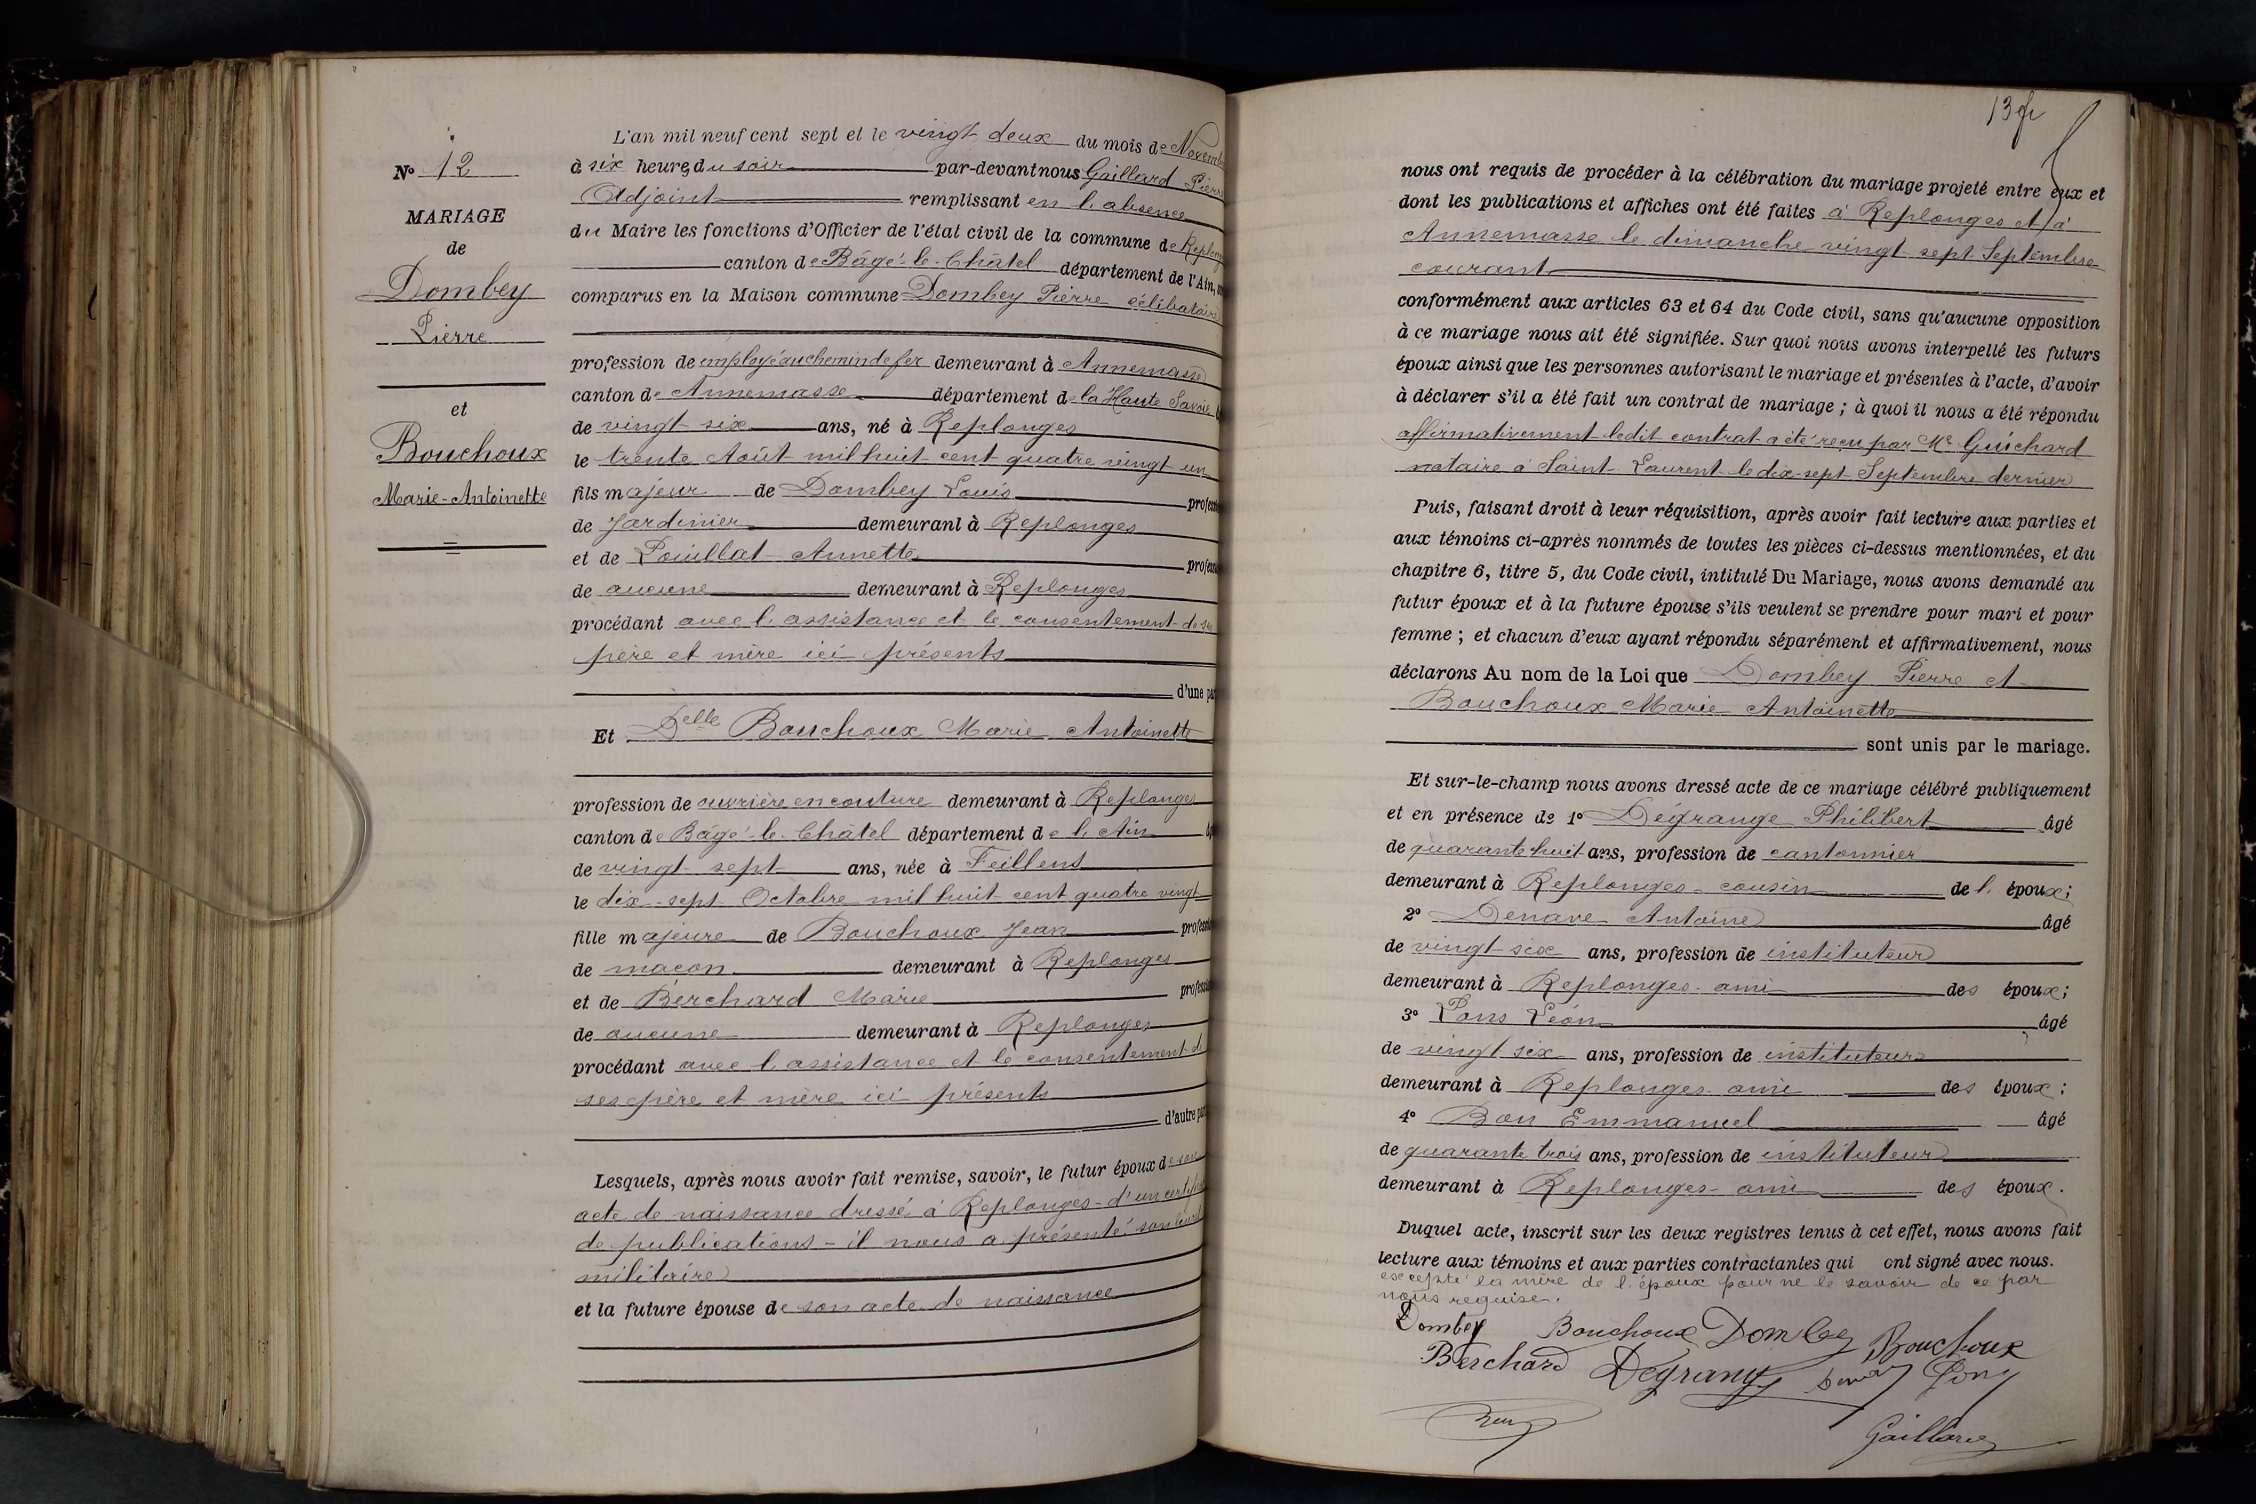 N° 12
MARIAGE
de
Dombey
Pierre
et
Bouchoux
Marie-Antoinette
L'an mil neuf cent sept et le vingt deux du mois de Novemb
à six heures du soir par-devant nous Gaillard Pierre
Adjoint remplissant en l'absence
du Maire les fonctions d'Officier de l'état civil de la commune de Replong
canton de Bâgé-le-Châtel département de l'Ain,
comparus en la Maison commune Dombey Pierre célibataire
profession de employé au chemin de fer demeurant à Annemasse
canton de Annemasse département de la Haute Savoie
de vingt six ans, né à Replonges
le trente Août mil huit cent quatre vingt un
fils majeur de Dombey Louis profess
de Jardinier demeurant à Replonges
et de Pouillat Annette profess
de aucune demeurant à Replonges
procédant avec l'assistance et le consentement de ses
père et mère ici présents
d'une par
Et Delle Bouchoux Marie Antoinette
profession de ouvrière en couture demeurant à Replonges
canton de Bâgé-le-Châtel département de l'Ain
de vingt-sept ans, née à Feillens
le dix-sept Octobre mil huit cent quatre vingt
fille majeure de Bouchoux Jean profess
de maçon demeurant à Replonges
et de Berchard Marie profess
de aucune demeurant à Replonges
procédant avec l'assistance et le consentement de
ses père et mère ici présents
d'autre par
Lesquels, après nous avoir fait remise, savoir, le futur époux de son
acte de naissance dressé à Replonges - d'un certifi
de publications - il nous a présenté son livret
militaire
et la future épouse de son acte de naissance
13
nous ont requis de procéder à la célébration du mariage projeté entre eux et
dont les publications et affiches ont été faites à Replonges et à
Annemasse le dimanche vingt-sept Septembre
courant
conformément aux articles 63 et 64 du Code civil, sans qu'aucune opposition
à ce mariage nous ait été signifiée. Sur quoi nous avons interpellé les futurs
époux ainsi que les personnes autorisant le mariage et présentes à l'acte, d'avoir
à déclarer s'il a été fait un contrat de mariage ; à quoi il nous a été répondu
affirmativement ledit contrat a été reçu par Me Guichard
notaire à Saint-Laurent le dix-sept Septembre dernier
Puis, faisant droit à leur réquisition, après avoir fait lecture aux parties et
aux témoins ci-après nommés de toutes les pièces ci-dessus mentionnées, et du
chapitre 6, titre 5, du Code civil, intitulé Du Mariage, nous avons demandé au
futur époux et à la future épouse s'ils veulent se prendre pour mari et pour
femme ; et chacun d'eux ayant répondu séparément et affirmativement, nous
déclarons Au nom de la Loi que Dombey Pierre et
Bouchoux Marie Antoinette
sont unis par le mariage.
Et sur-le-champ nous avons dressé acte de ce mariage célébré publiquement
et en présence de 1° Dégrange Philibert âgé
de quarante huit ans, profession de cantonnier
demeurant à Replonges - cousin de l'époux ;
2° Denave Antoine âgé
de vingt six ans, profession de instituteur
demeurant à Replonges - ami des époux ;
3° Pons Léon âgé
de vingt six ans, profession de instituteur
demeurant à Replonges - ami des époux ;
4° Bon Emmanuel âgé
de quarante trois ans, profession de instituteur
demeurant à Replonges - ami des époux.
Duquel acte, inscrit sur les deux registres tenus à cet effet, nous avons fait
lecture aux témoins et aux parties contractantes qui ont signé avec nous.
excepté la mère de l'époux pour ne le savoir de ce par
nous requise.
Dombey Bouchoux Dombey Bouchoux
Berchard Degrange Pons
Gaillard